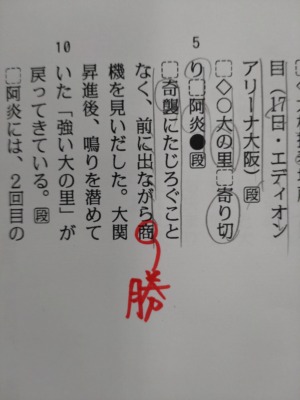 目（17日・エディオン
アリーナ大阪）段
◇○大の里寄り切
5
り阿炎●段
奇襲にたじろぐこと
なく、前に出ながら商
勝
機を見いだした。大関
昇進後、鳴りを潜めて
10
いた「強い大の里」が
戻ってきている。段
阿炎には、２回目の